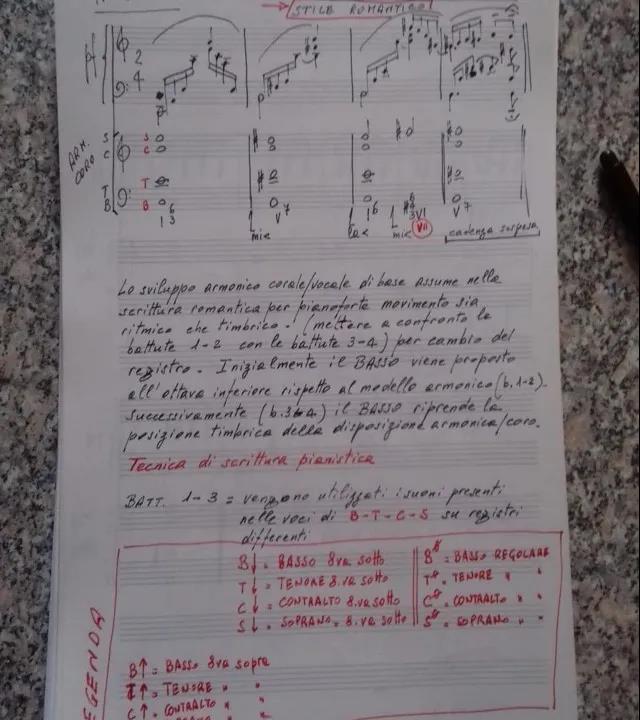 STILE ROMANTICO
2
4
ARM.
CORO
S S
C C
T T
B B
6
I 3
mi<
V 7
la<
I 6
mi<
VI
VII
V 7
cadenza sospesa
Lo sviluppo armonico corale/vocale di base assume nella
scrittura romantica per pianoforte movimento sia
ritmico che timbrico. (mettere a confronto le
battute 1-2 con le battute 3-4) per cambio del
registro. Inizialmente il BASSO viene proposto
all'ottava inferiore rispetto al modello armonico (b.1-2).
successivamente (b.3e4) il BASSO riprende la
posizione timbrica della disposizione armonica/coro.
Tecnica di scrittura pianistica
BATT. 1-3 = vengono utilizzati i suoni presenti
nelle voci di B-T-C-S su registri
differenti
B↓ = BASSO 8va sotto B = BASSO REGOLARE
T↓ = TENORE 8.va sotto T = TENORE " "
C↓ = CONTRALTO 8.va sotto C = CONTRALTO " "
S↓ = SOPRANO = 8.va sotto S = SOPRANO " "
EGENDA
B↑ = BASSO 8va sopra
T↑ = TENORE " "
C↑ = CONTRALTO " "